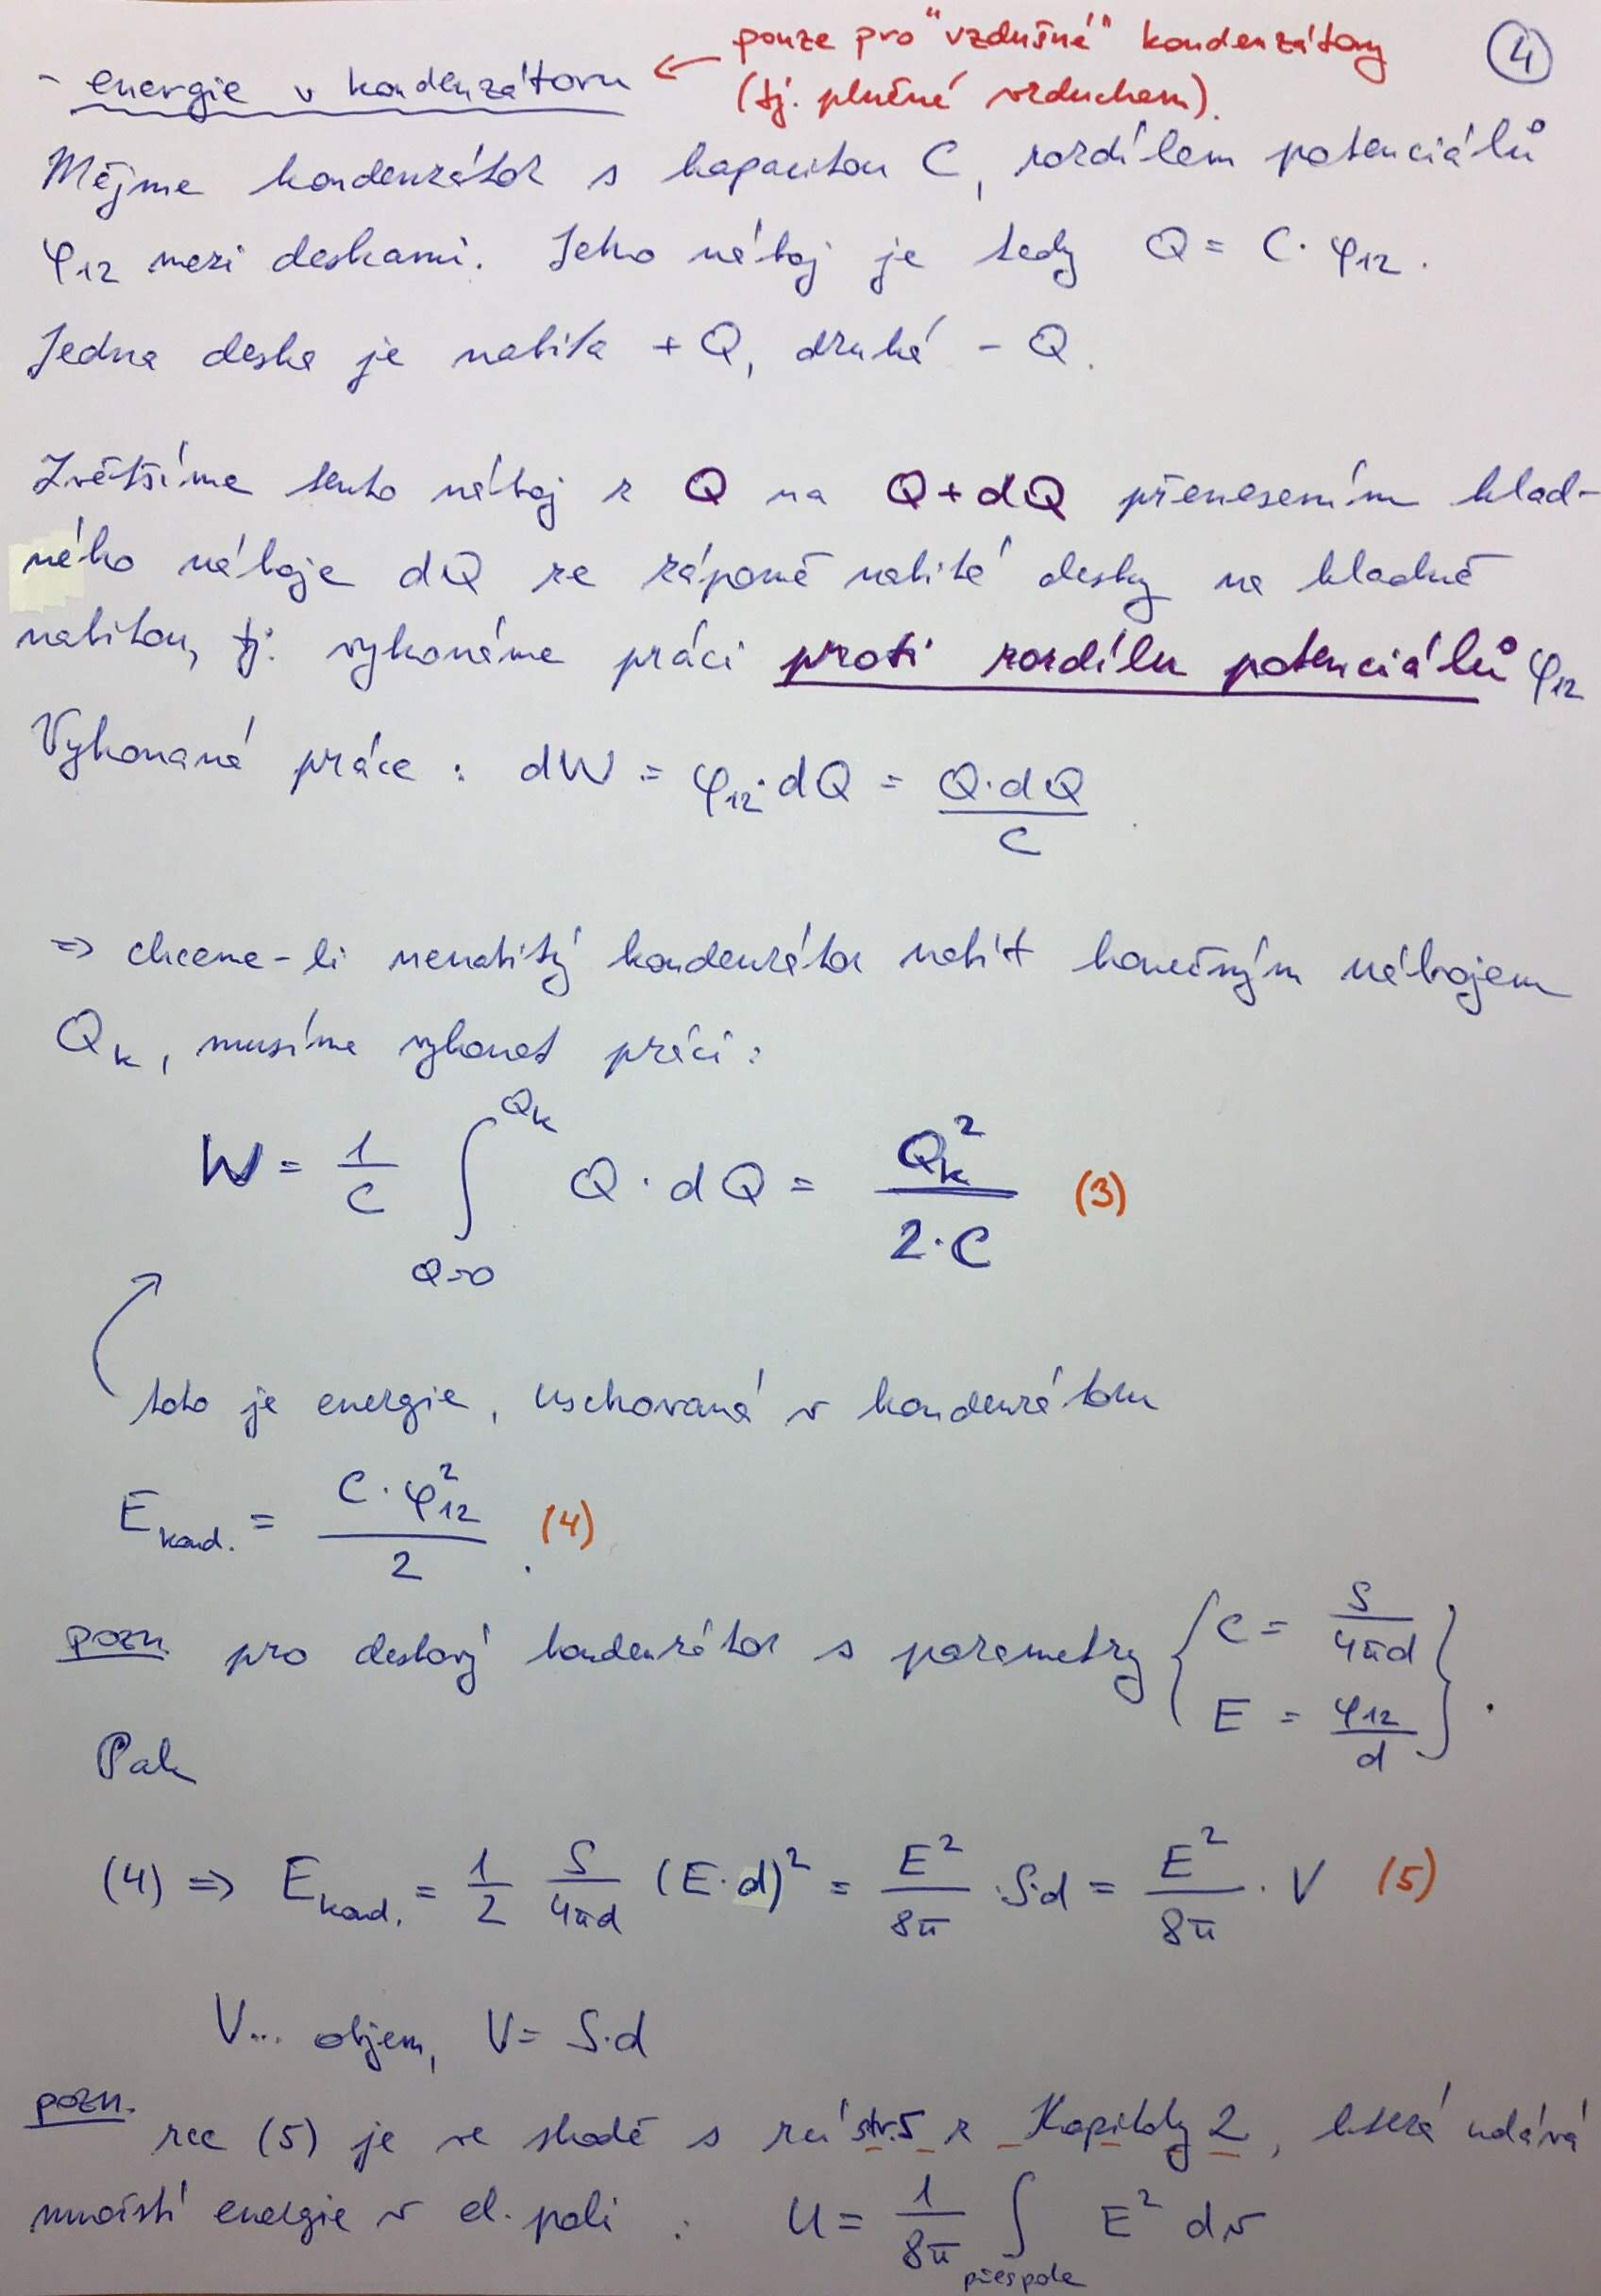 pouze pro "vzdušné" kondenzátory
(tj. plněné vzduchem).
4
- energie v kondenzátoru ←
Mějme kondenzátor s kapacitou C, rozdílem potenciálů
φ₁₂ mezi deskami. Jeho náboj je tedy Q = C · φ₁₂.
Jedna deska je nabita + Q, druhá - Q.
Zvětšíme tento náboj z Q na Q + dQ přenesením klad-
ného náboje dQ ze záporně nabité desky na kladně
nabitou, tj. vykonáme práci proti rozdílu potenciálů φ₁₂
Vykonaná práce : dW = φ₁₂ · dQ = Q·dQ / C
⇒ chceme-li nenabitý kondenzátor nabít konečným nábojem
Qₖ, musíme vykonat práci :
W = 1/C ∫_{Q=0}^{Qₖ} Q · dQ = Qₖ² / 2·C (3)
toto je energie, uschovaná v kondenzátoru
E_kond. = C · φ₁₂² / 2 . (4)
pozn. pro deskový kondenzátor s parametry { C = S / 4πd
E = φ₁₂ / d } .
Pak
(4) ⇒ E_kond. = 1/2 S/4πd (E·d)² = E²/8π · S·d = E²/8π · V (5)
V... objem, V = S·d
pozn. rce (5) je ve shodě s rcí str.5 z Kapitoly 2, která udává
množství energie v el. poli : U = 1/8π ∫_{přes pole} E² dv